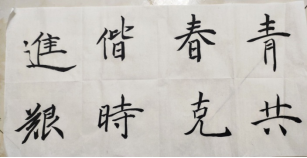 青春偕進
共克時艱